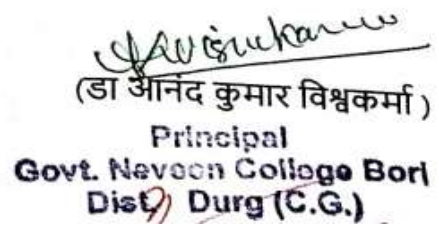 (डा आनंद कुमार विश्वकर्मा)
Principal
Govt. Naveen College Bori
Dist. Durg (C.G.)